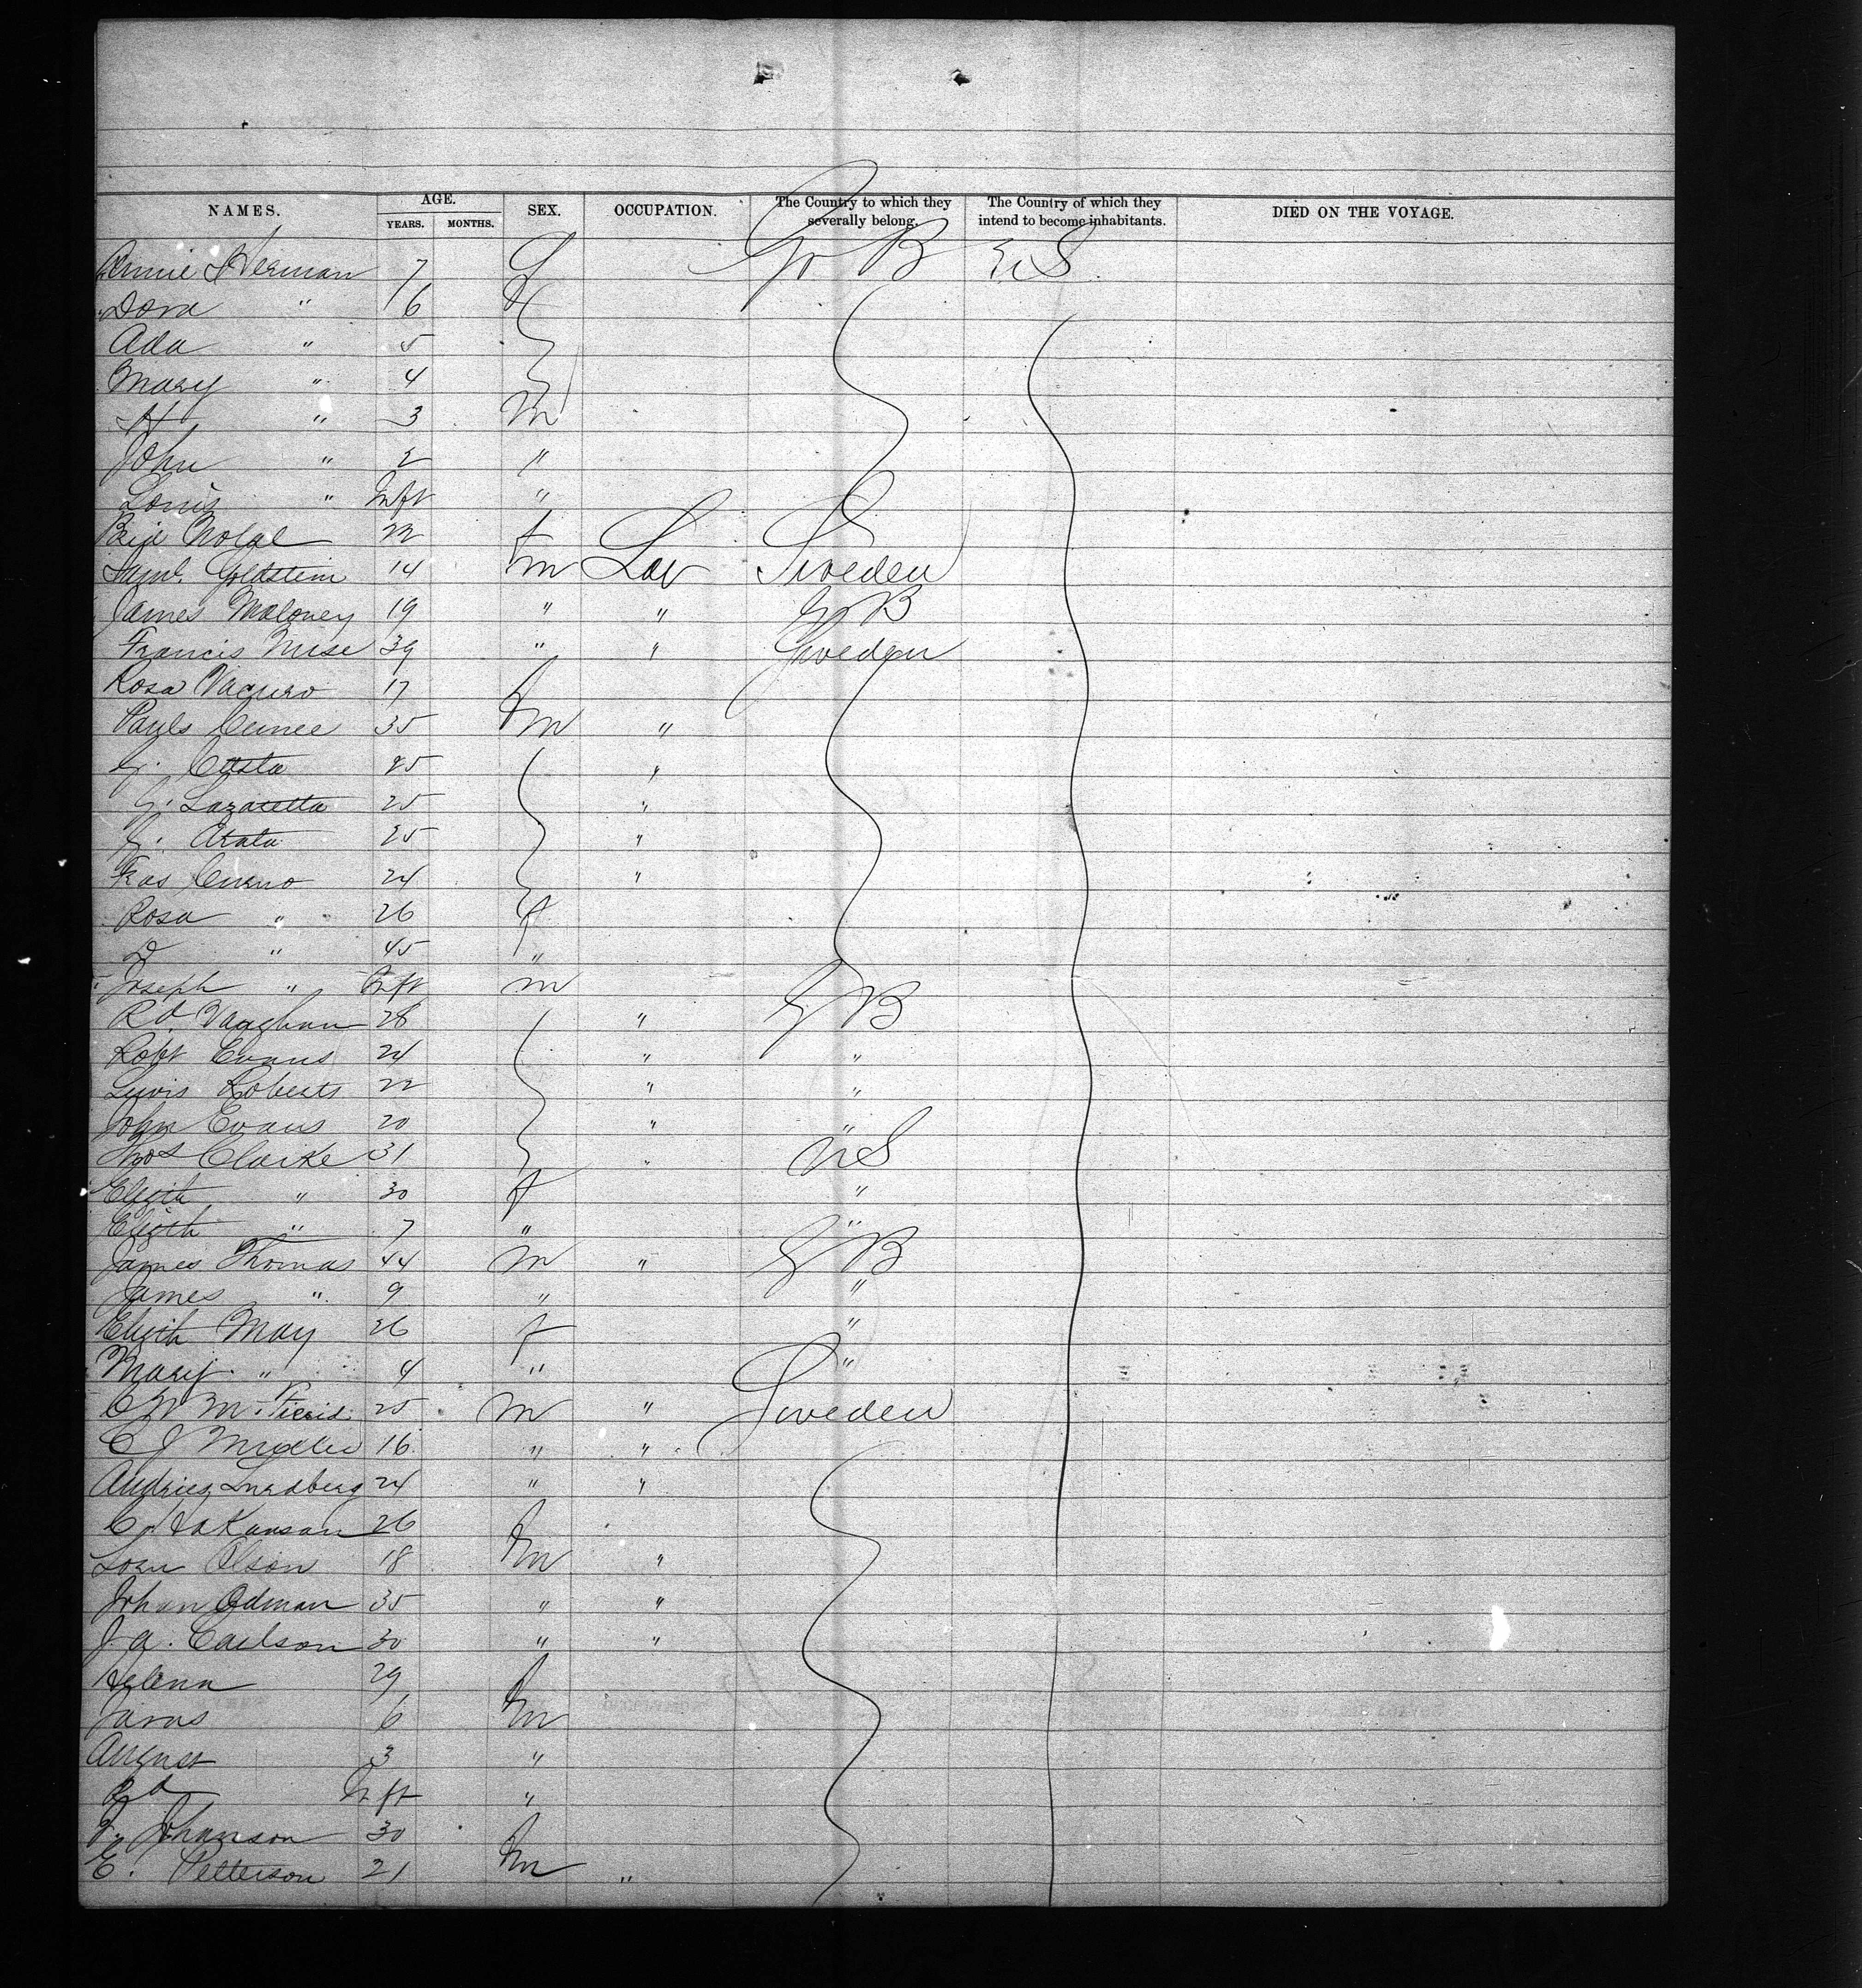 NAMES. AGE. YEARS. MONTHS. SEX. OCCUPATION. The Country to which they severally belong. The Country of which they intend to become inhabitants. DIED ON THE VOYAGE.
Annie Herman 7 f Gr B U S
Dora " 6 f
Ada " 5
Mary " 4
H " 3 m
John " 2 "
Louis " Inft "
22 f
Goldstein 14 m Lab Sweden
James Maloney 19 " " Gr B
Francis 39 " " Sweden
Rosa 17 f
35 m "
G. Costa 25 "
G. Lazaretta 25 "
G. Arata 25 "
Fras Cuneo 24 "
Rosa " 26 f
" 45 "
Joseph " Inft m
Rd Vaughan 28 " G B
Robt Evans 24 " "
Lewis Roberts 22 " "
John Evans 20 " "
Thos Clarke 31 " U S
Elizth " 30 f "
Elizth " 7 " "
James Thomas 44 m " G B
James " 9 " "
Elizth May 26 f "
Mary " 4 " "
25 m " Sweden
C J 16 " "
24 " "
C Hakanson 26 f
Olson 18 m "
Johan Odman 35 " "
J. A. Carlson 30 " "
Helena 29 f
6 m
August 3 "
Inft "
Johanson 30 f
E. Petterson 21 m "